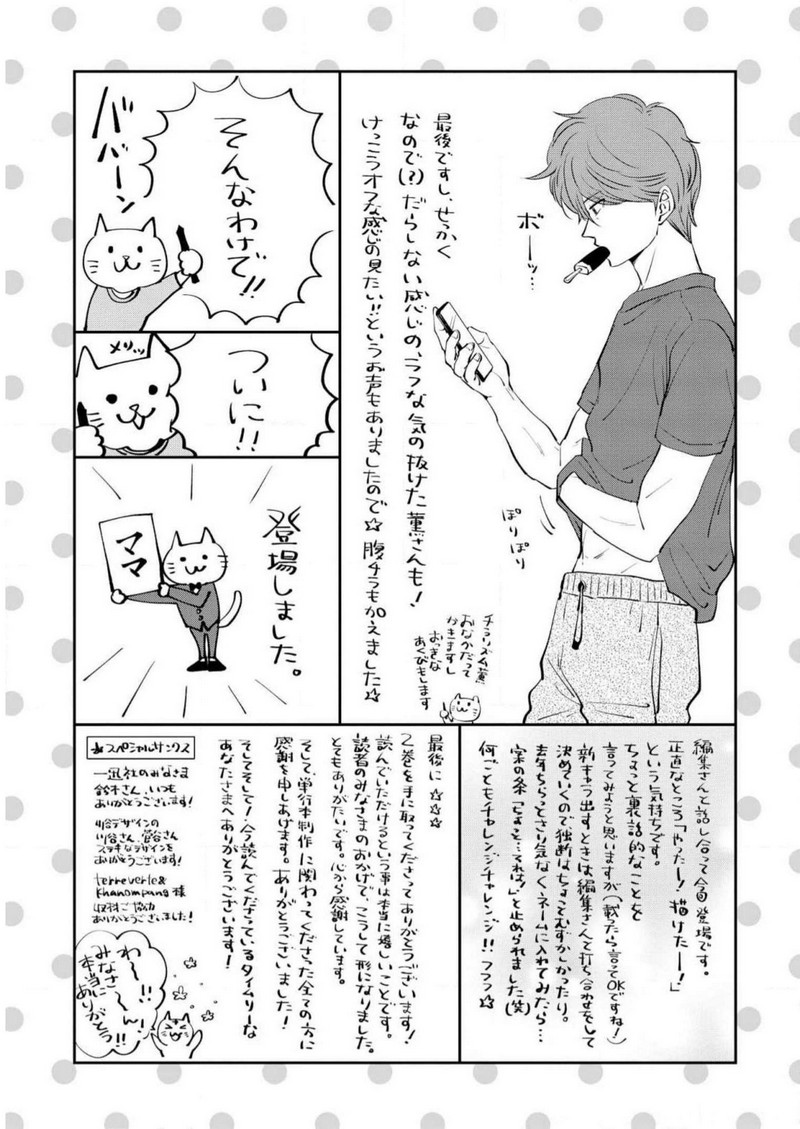 そんなわけで!!
ババーン
ついに!!
メリッ
登場しました。
ママ
最後ですし、せっかく
なので(?)だらしない感じの、ラフな気の抜けた薫さんも!
けっこうオフな感じの見たい!!というお声もありましたので☆ 腹チラもかえました☆☆
ボーッ…
ぽりぽり
おなかだって
かきますし
おっきな
あくびもします
編集さんと話し合って今回登場です。
正直なところ「やったー!描けたー!」
という気持ちです。
ちょっと裏話的なことを
言ってみようと思いますが(載ったら言ってOKですね!)
新キャラ出すときは編集さんと打ち合わせをして
決めていくので独断はちょこっとむずかしかったり。
去年ちらっとさり気なく、ネームに入れてみたら…
案の条「ちょまっ…てれよ!」と止められました(笑)
何ごともチャレンジチャレンジ!!フフフ☆
最後に☆☆☆
2巻を手に取ってくださってありがとうございます!
読んでいただけるという事は本当に嬉しいことです。
読者のみなさまのおかげで、こうして形になりました。
とてもありがたいです。心から感謝しています。
そして、単行本制作に関わってくださった全ての方に
感謝を申しあげます。ありがとうございました!
そしてそして!今読んでくださっているタイムリーな
あなたさまへありがとうございます!
★スペシャルサンクス
一迅社のみなさま
鈴木さん、いつも
ありがとうございます!
川谷デザインの
川谷さん、菅谷さん
ステキなデザインを
ありがとうございます!
terreverle&
khanompang 様
取材ご協力
ありがとうございました!
わ〜〜!!
みなさ〜〜ん!
本当に
ありがとう!